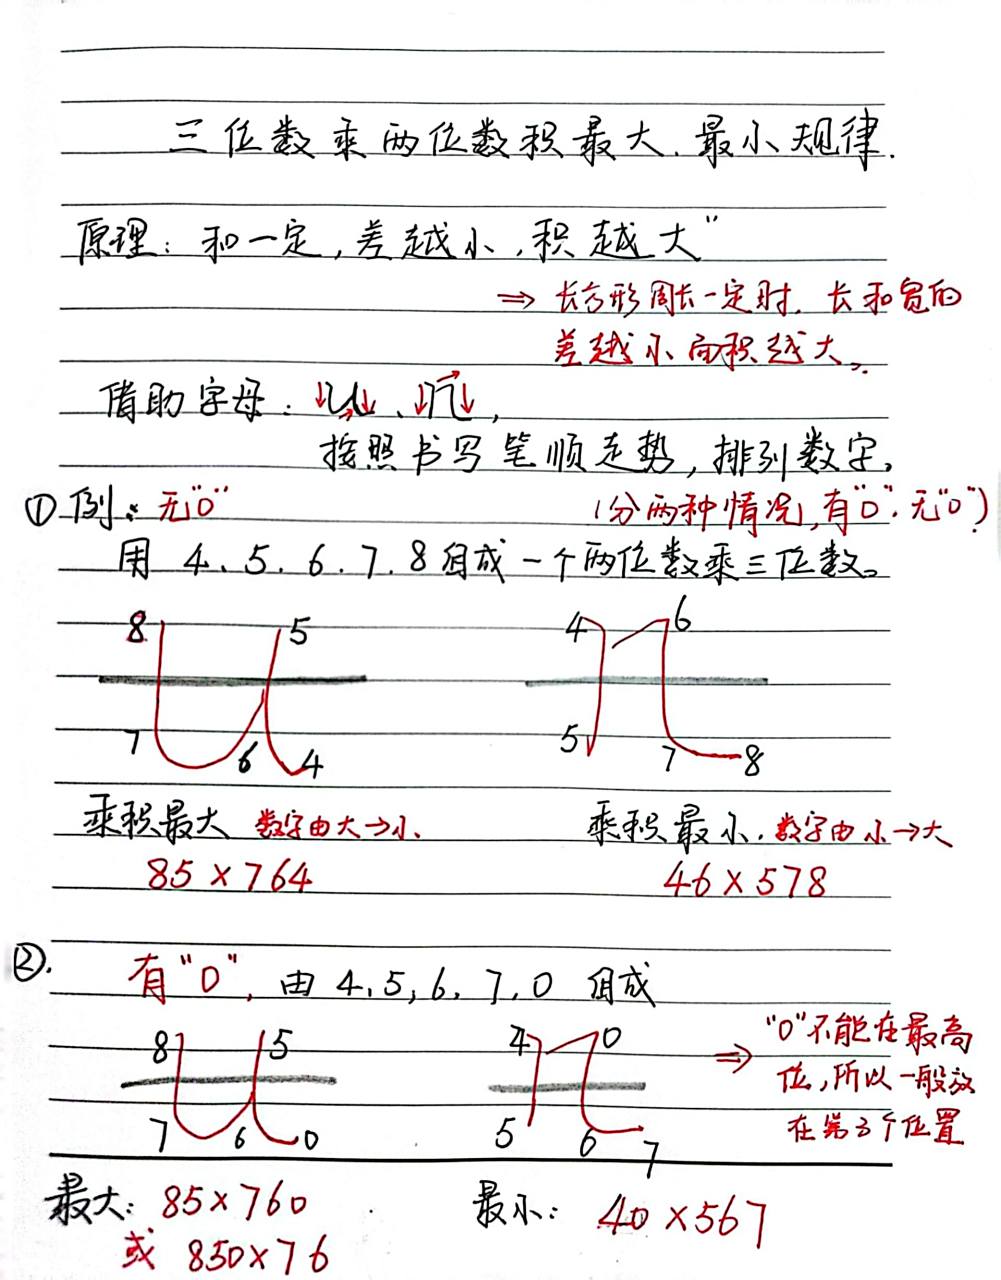 三位数乘两位数积最大.最小规律.
原理:和一定,差越小,积越大"
⇒ 长方形周长一定时.长和宽的
差越小面积越大。
借助字母: ↓U↓、↓n↓,
按照书写笔顺走势,排列数字。
①例:无"0" (分两种情况,有"0".无"0")
用 4、5.6.7.8组成一个两位数乘三位数。
8 5 4 6
7 6 4 5 7 8
乘积最大 数字由大→小. 乘积最小.数字由小→大
85×764 46×578
②. 有"0",由 4,5,6,7,0 组成
8 5 4 0
7 6 0 5 6 7
⇒ "0"不能在最高
位,所以一般放
在第3个位置
最大: 85×760 最小: 40×567
或 850×76